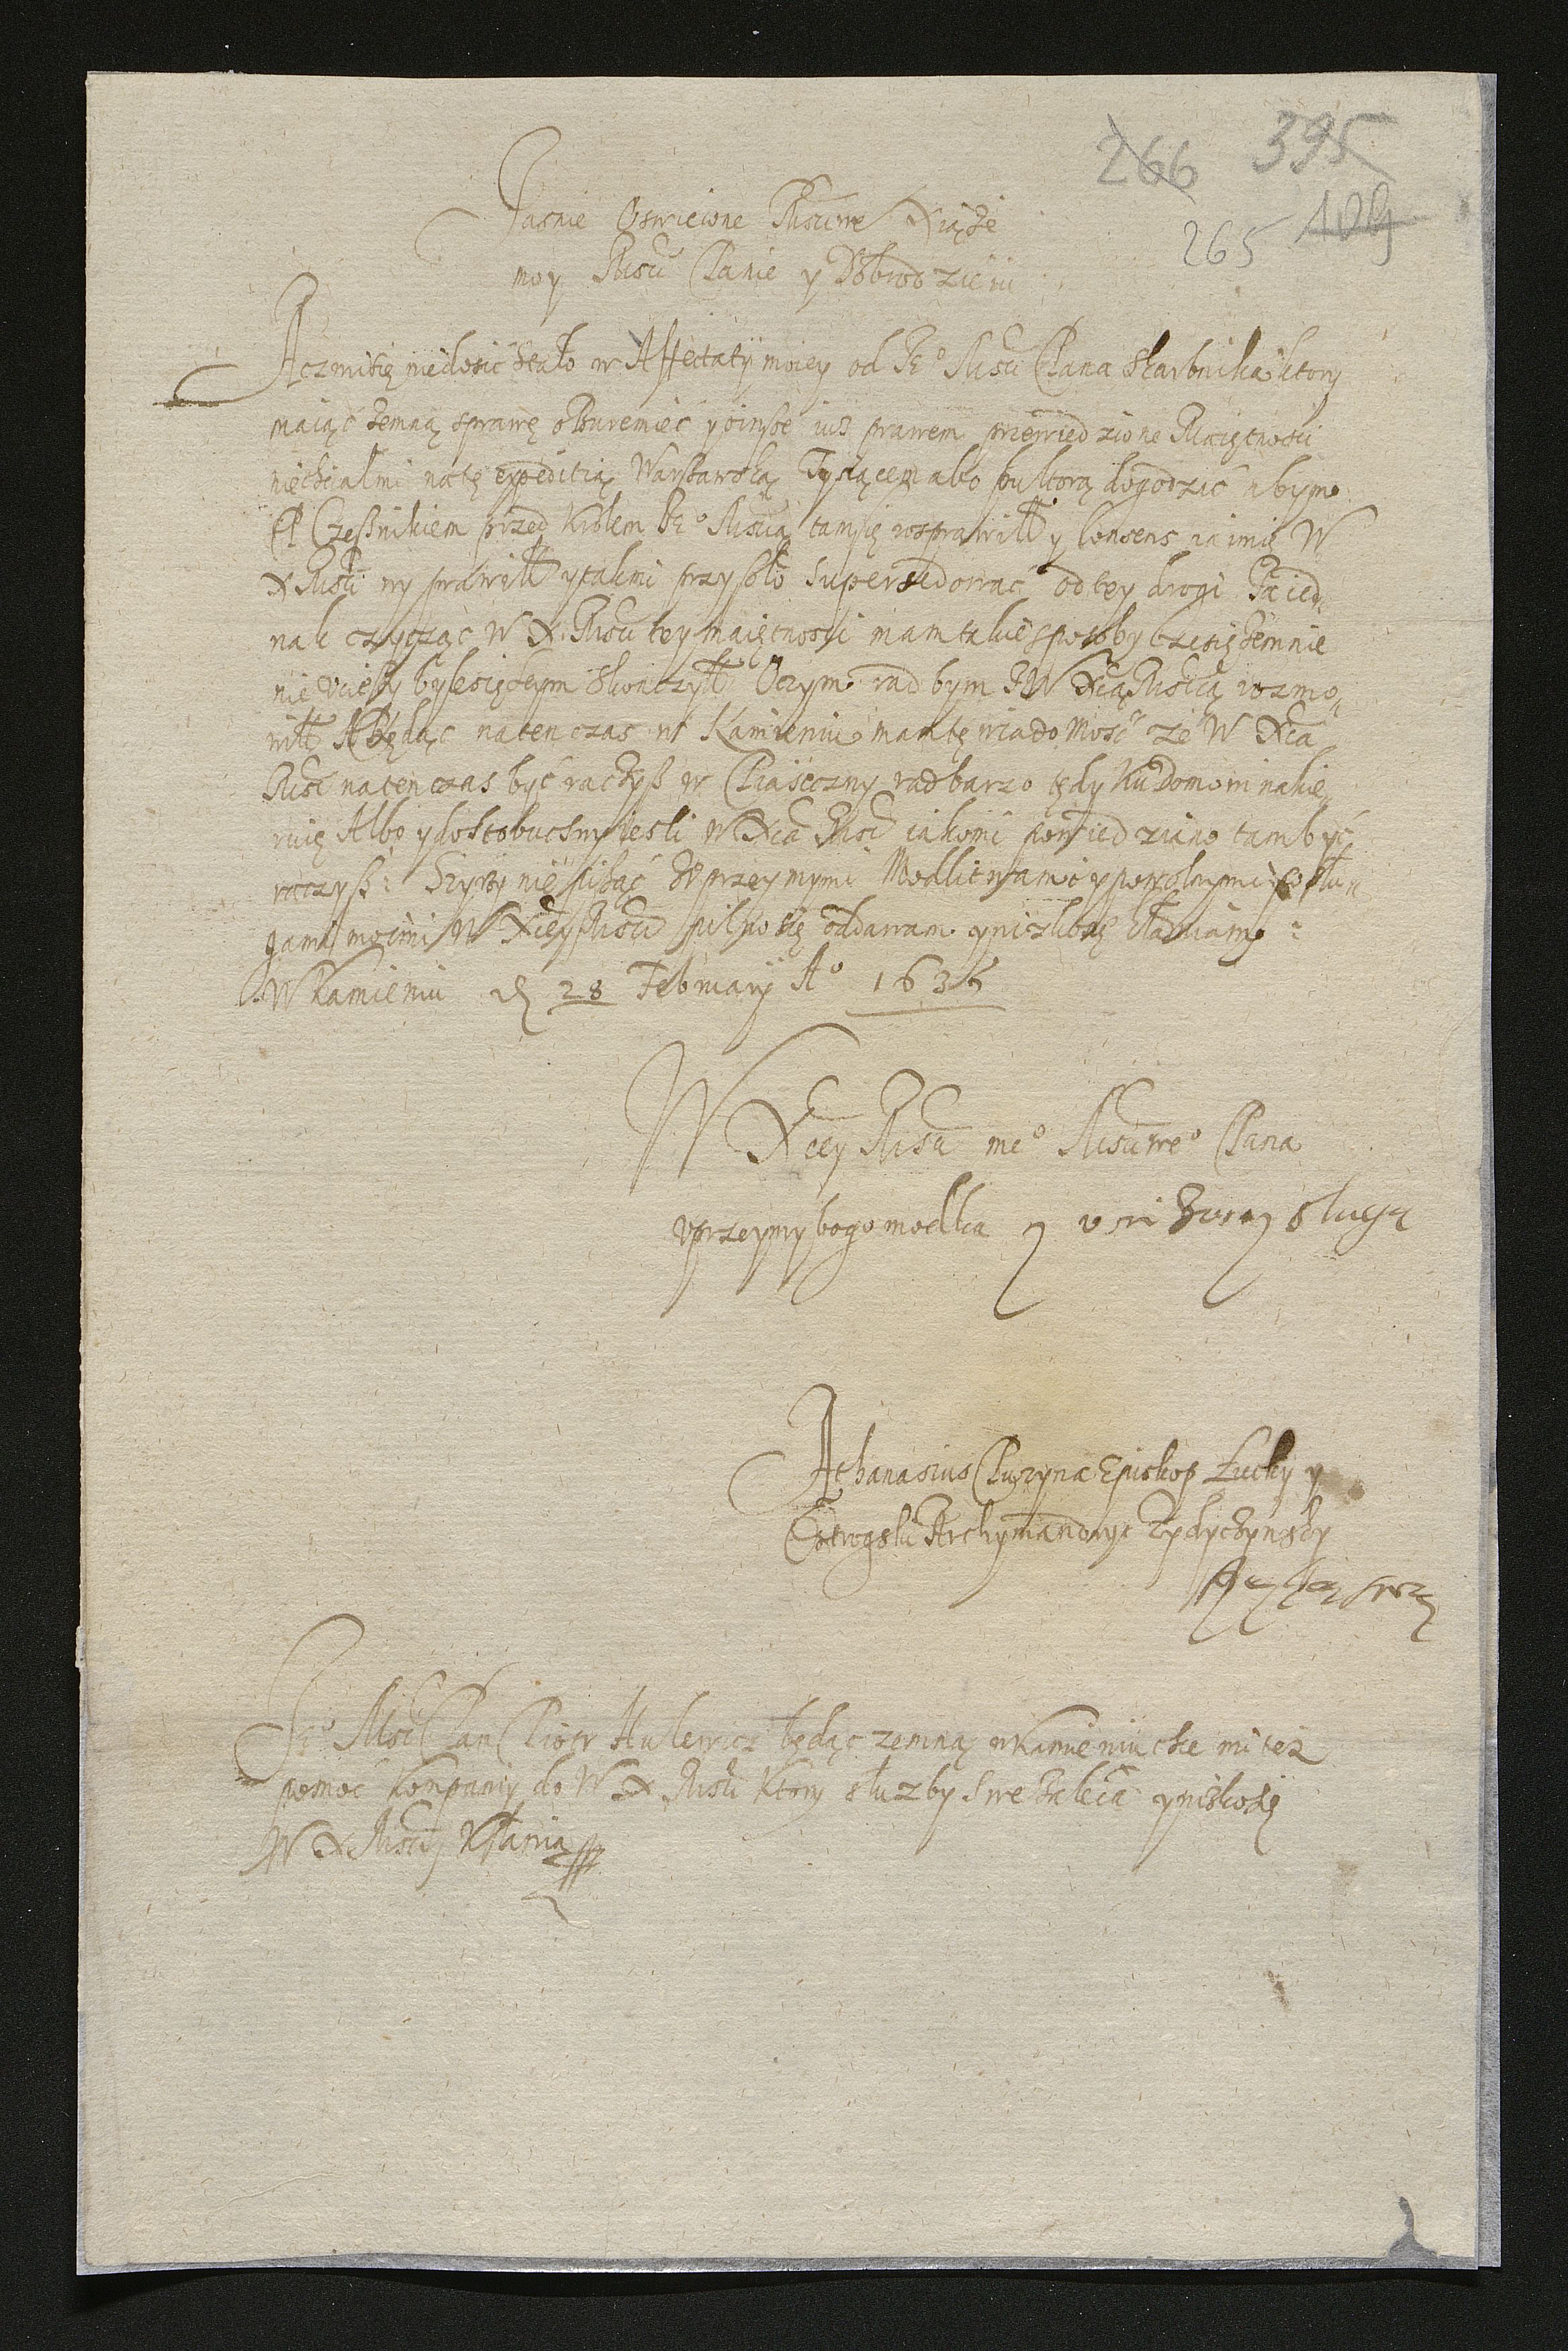 266 395
265 409
Jasnie Oswiecone Msciwe Xiąże
moy Msci Panie y Dobrodzieiu
Acz mi się niedosić stało w Affectatÿ moiey od Je° Mści Pana Skarbnika ktory
maiąc zemną sprawę o Buremiec y oinsze iuż prawem przewiedzione Maiętnosci
niechciał mi natę expeditią Warszawską Tysiącem albo pułtorą dogodzić abym
P Czesnikiem przed Krolem Je° Mścią tam się rosprawiłł y Consens na imię W
X Mści wyprawiłł y tak mi przyszło supersedować od tey drogi Ja ied„
nak zycząc W X Mści tey maiętnosci mam takie sposoby ze się zemnie
nie byle się skonczyłł Oczym rad bym z W Xcą Mścią rozmo„
wiłł A Będąc natenczas w Kamieniu mam tę wiadomość że W Xca
Mść natenczas być raczysz w Piaseczny rad barzo tędy ku domowi nakie„
ruię Albo y do iesli W Xca Mść iako mi powiedziano tam być
raczysz: przeymymi Modlitwami y powolnymi słu„
gami moimi W Xcey Mści pilno się oddawam y nizko się kłaniam:
W Kamieniu d 28 Februarÿ A° 1636
W Xcey Mści me° Mściwe° Pana
uprzeymy bogomodlca y sluga
Athanasius Puzyna Episkop Łucky y
Ostrogski Archymandryt Zydyczynsky
Je° Mść Pan Piotr Hulewicz będąc zemną w Kamieniu chce mi też
pomoc Kompaniy do W X Mści Ktory służby swe zaleca y nisko się
W X Mści Kłania